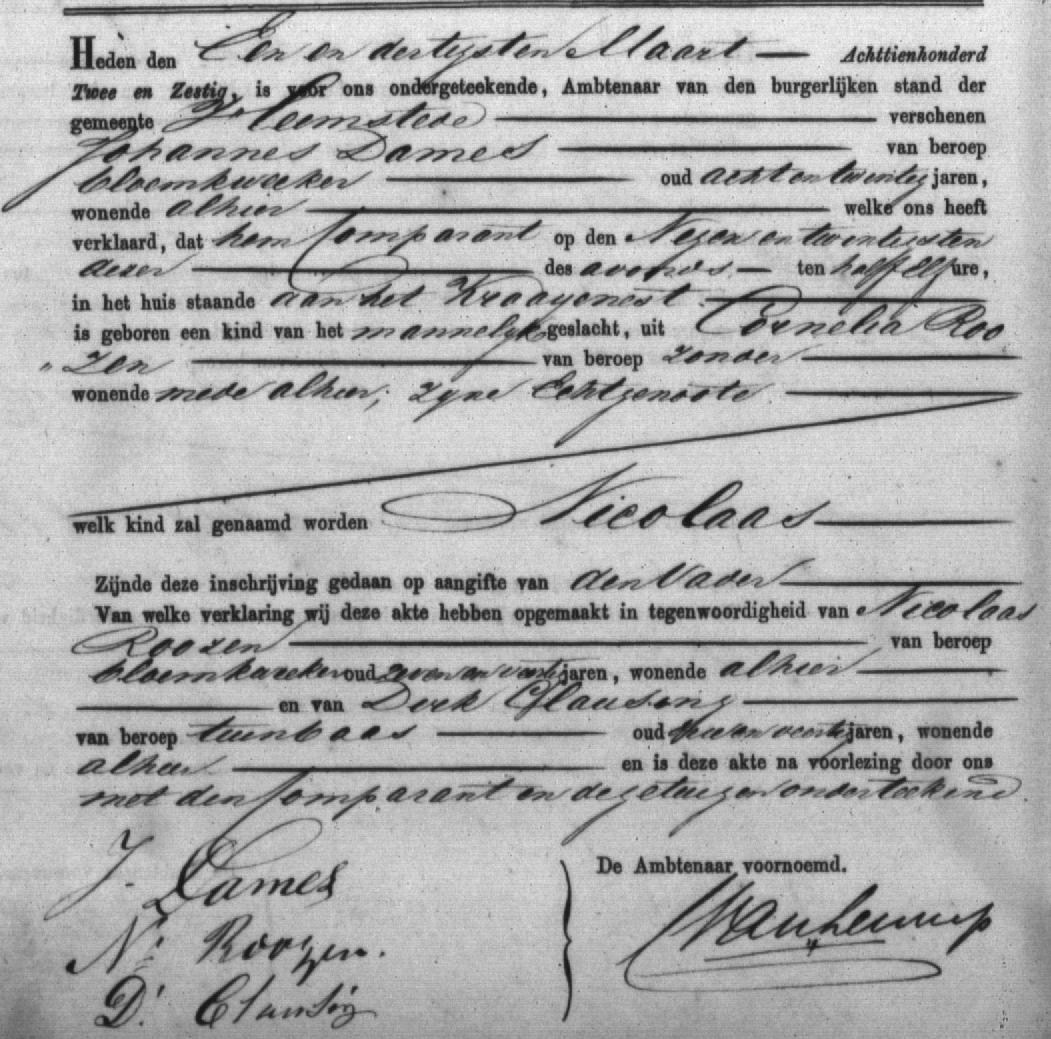 Heden den Een en dertigsten Maart — Achttienhonderd
Twee en Zestig, is voor ons ondergeteekende, Ambtenaar van den burgerlijken stand der
gemeente Heemstede verschenen
Johannes Dames van beroep
bloemkweeker oud acht en twintig jaren,
wonende alhier welke ons heeft
verklaard, dat hem Comparant op den Negen en twintigsten
dezer des avonds — ten half Elf ure,
in het huis staande aan het Kraayenest
is geboren een kind van het mannelijk geslacht, uit Cornelia Roo
„ zen van beroep zonder
wonende mede alhier, zyne Echtgenoote
welk kind zal genaamd worden Nicolaas
Zijnde deze inschrijving gedaan op aangifte van den Vader
Van welke verklaring wij deze akte hebben opgemaakt in tegenwoordigheid van Nicolaas
Roozen van beroep
bloemkweeker oud zeven en veertig jaren, wonende alhier
en van Dirk Clausing
van beroep tuinbaas oud veertig jaren, wonende
alhier en is deze akte na voorlezing door ons
met den Comparant en de getuigen onderteekend
J. Dames
De Ambtenaar voornoemd.
N: Roozen.
D: Clausing